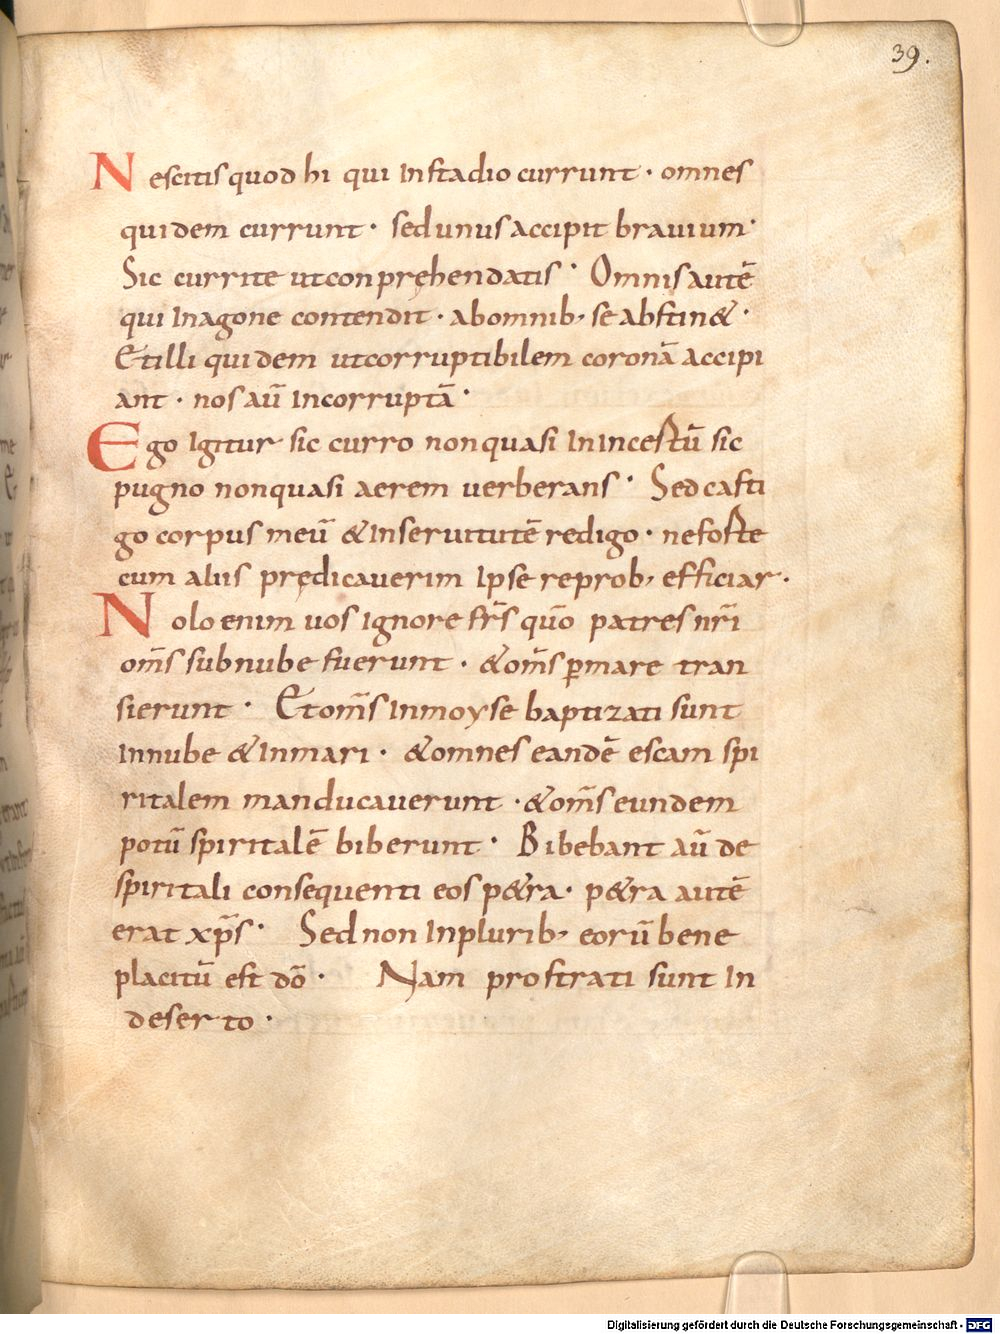 39.
Nescitis quod hi qui in stadio currunt · omnes
quidem currunt · sed unus accipit brauium·
Sic currite ut conpręhendatis · Omnis autē
qui in agone contendit · ab omnib, se abstin& ·
Et illi quidem ut corruptibilem coronā accipi
ant · nos aū incorruptā ·
Ego igitur sic curro non quasi in incestū sic
pugno non quasi aerem uerberans · Sed casti
go corpus meū & in seruitutē redigo · ne forte
cum aliis prędicauerim ipse reprob, efficiar ·
Nolo enim uos ignore fr̄s quō patres nr̄i
om̄s sub nube fuerunt · & om̄s ꝑ mare tran
sierunt · Et om̄s in moyse baptizati sunt
in nube & in mari · & omnes eandē escam spi
ritalem manducauerunt · & om̄s eundem
potū spiritalē biberunt · Bibebant aū de
spiritali consequenti eos p&ra · p&ra autē
erat xp̄s · Sed non in plurib, eorū bene
placitū est dō · Nam prostrati sunt in
deserto ·
Digitalisierung gefördert durch die Deutsche Forschungsgemeinschaft - DFG